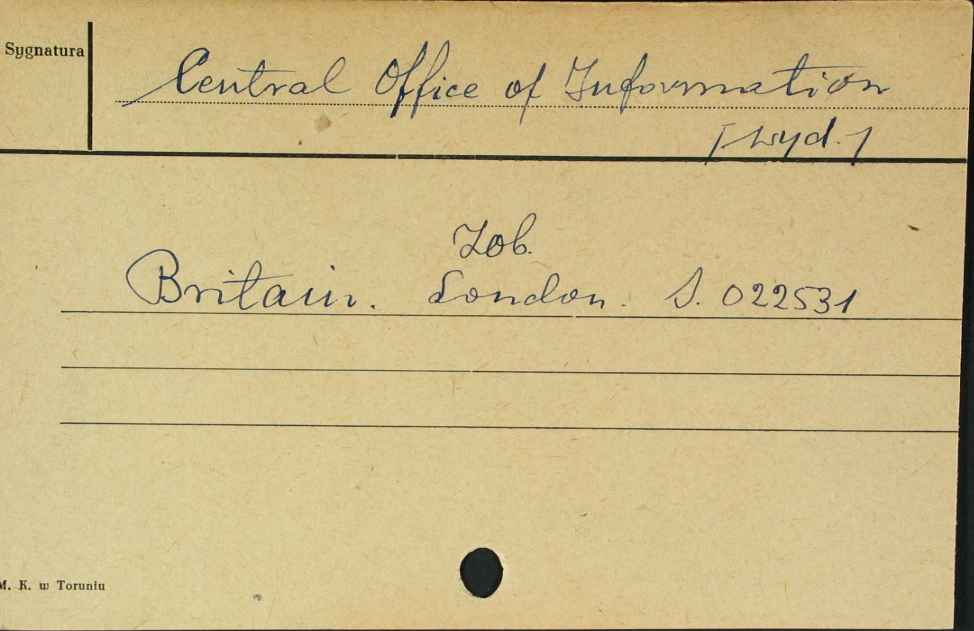 Sygnatura
Central Office of Information
[wyd.]
Zob.
Britain. London. S. 022531
M. K. w Toruniu